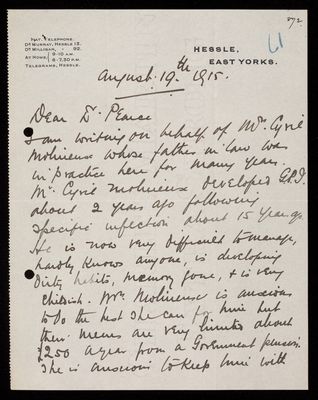 872.
61
NAT. TELEPHONE
DR MURRAY, HESSLE 13.
DR MILLIGAN, " 92.
AT HOME 9-10 A.M.
6-7.30 P.M.
TELEGRAMS, HESSLE.
HESSLE,
EAST YORKS.
August. 19.th 1915.
Dear Dr. Pearse
I am writing on behalf of Mrs. Cyril
Molineux whose father in law was
in practice here for many years.
Mr. Cyril Molineux developed G.P.I.
about 2 years ago following
specific infection about 15 years ago.
He is now very difficult to manage,
hardly knows anyone, is developing
dirty habits, memory gone, & is very
childish. Mrs. Molineux is anxious
to do the best she can for him but
their means are very limited about
£250 a year from a Government pension.
She is anxious to keep him with